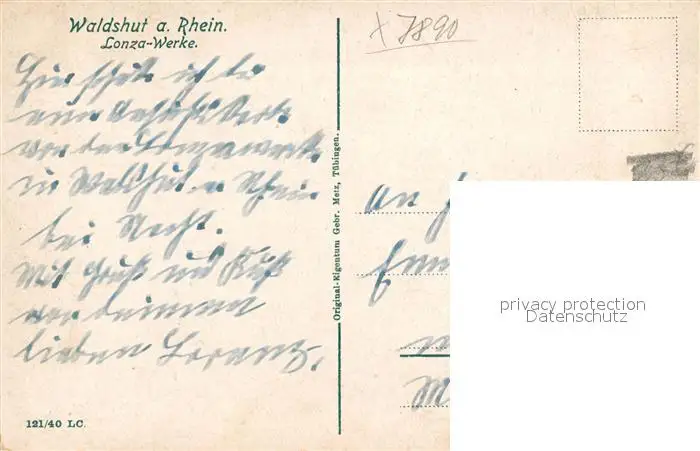 Waldshut a. Rhein.
Lonza-Werke.
x 7890
Hier schik ich dir
eine Ansichtskarte
von den Lonzawerke
in Waldshut a Rhein
bei Nacht.
Mit Gruß und Kuß
von deinem
lieben Lorenz.
Original-Eigentum Gebr. Metz, Tübingen.
An
privacy protection
Datenschutz
121/40 LC.